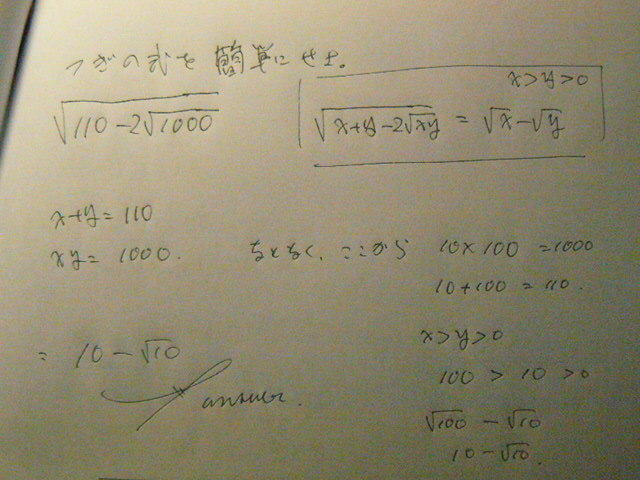 つぎの式を簡単にせよ。
x>y>0
√110-2√1000
√x+y-2√xy = √x-√y
x+y=110
xy= 1000.
なんとなく、ここから 10×100 =1000
10+100 = 110.
x>y>0
= 10-√10
100 > 10 >0
answer.
√100 - √10
10-√10.